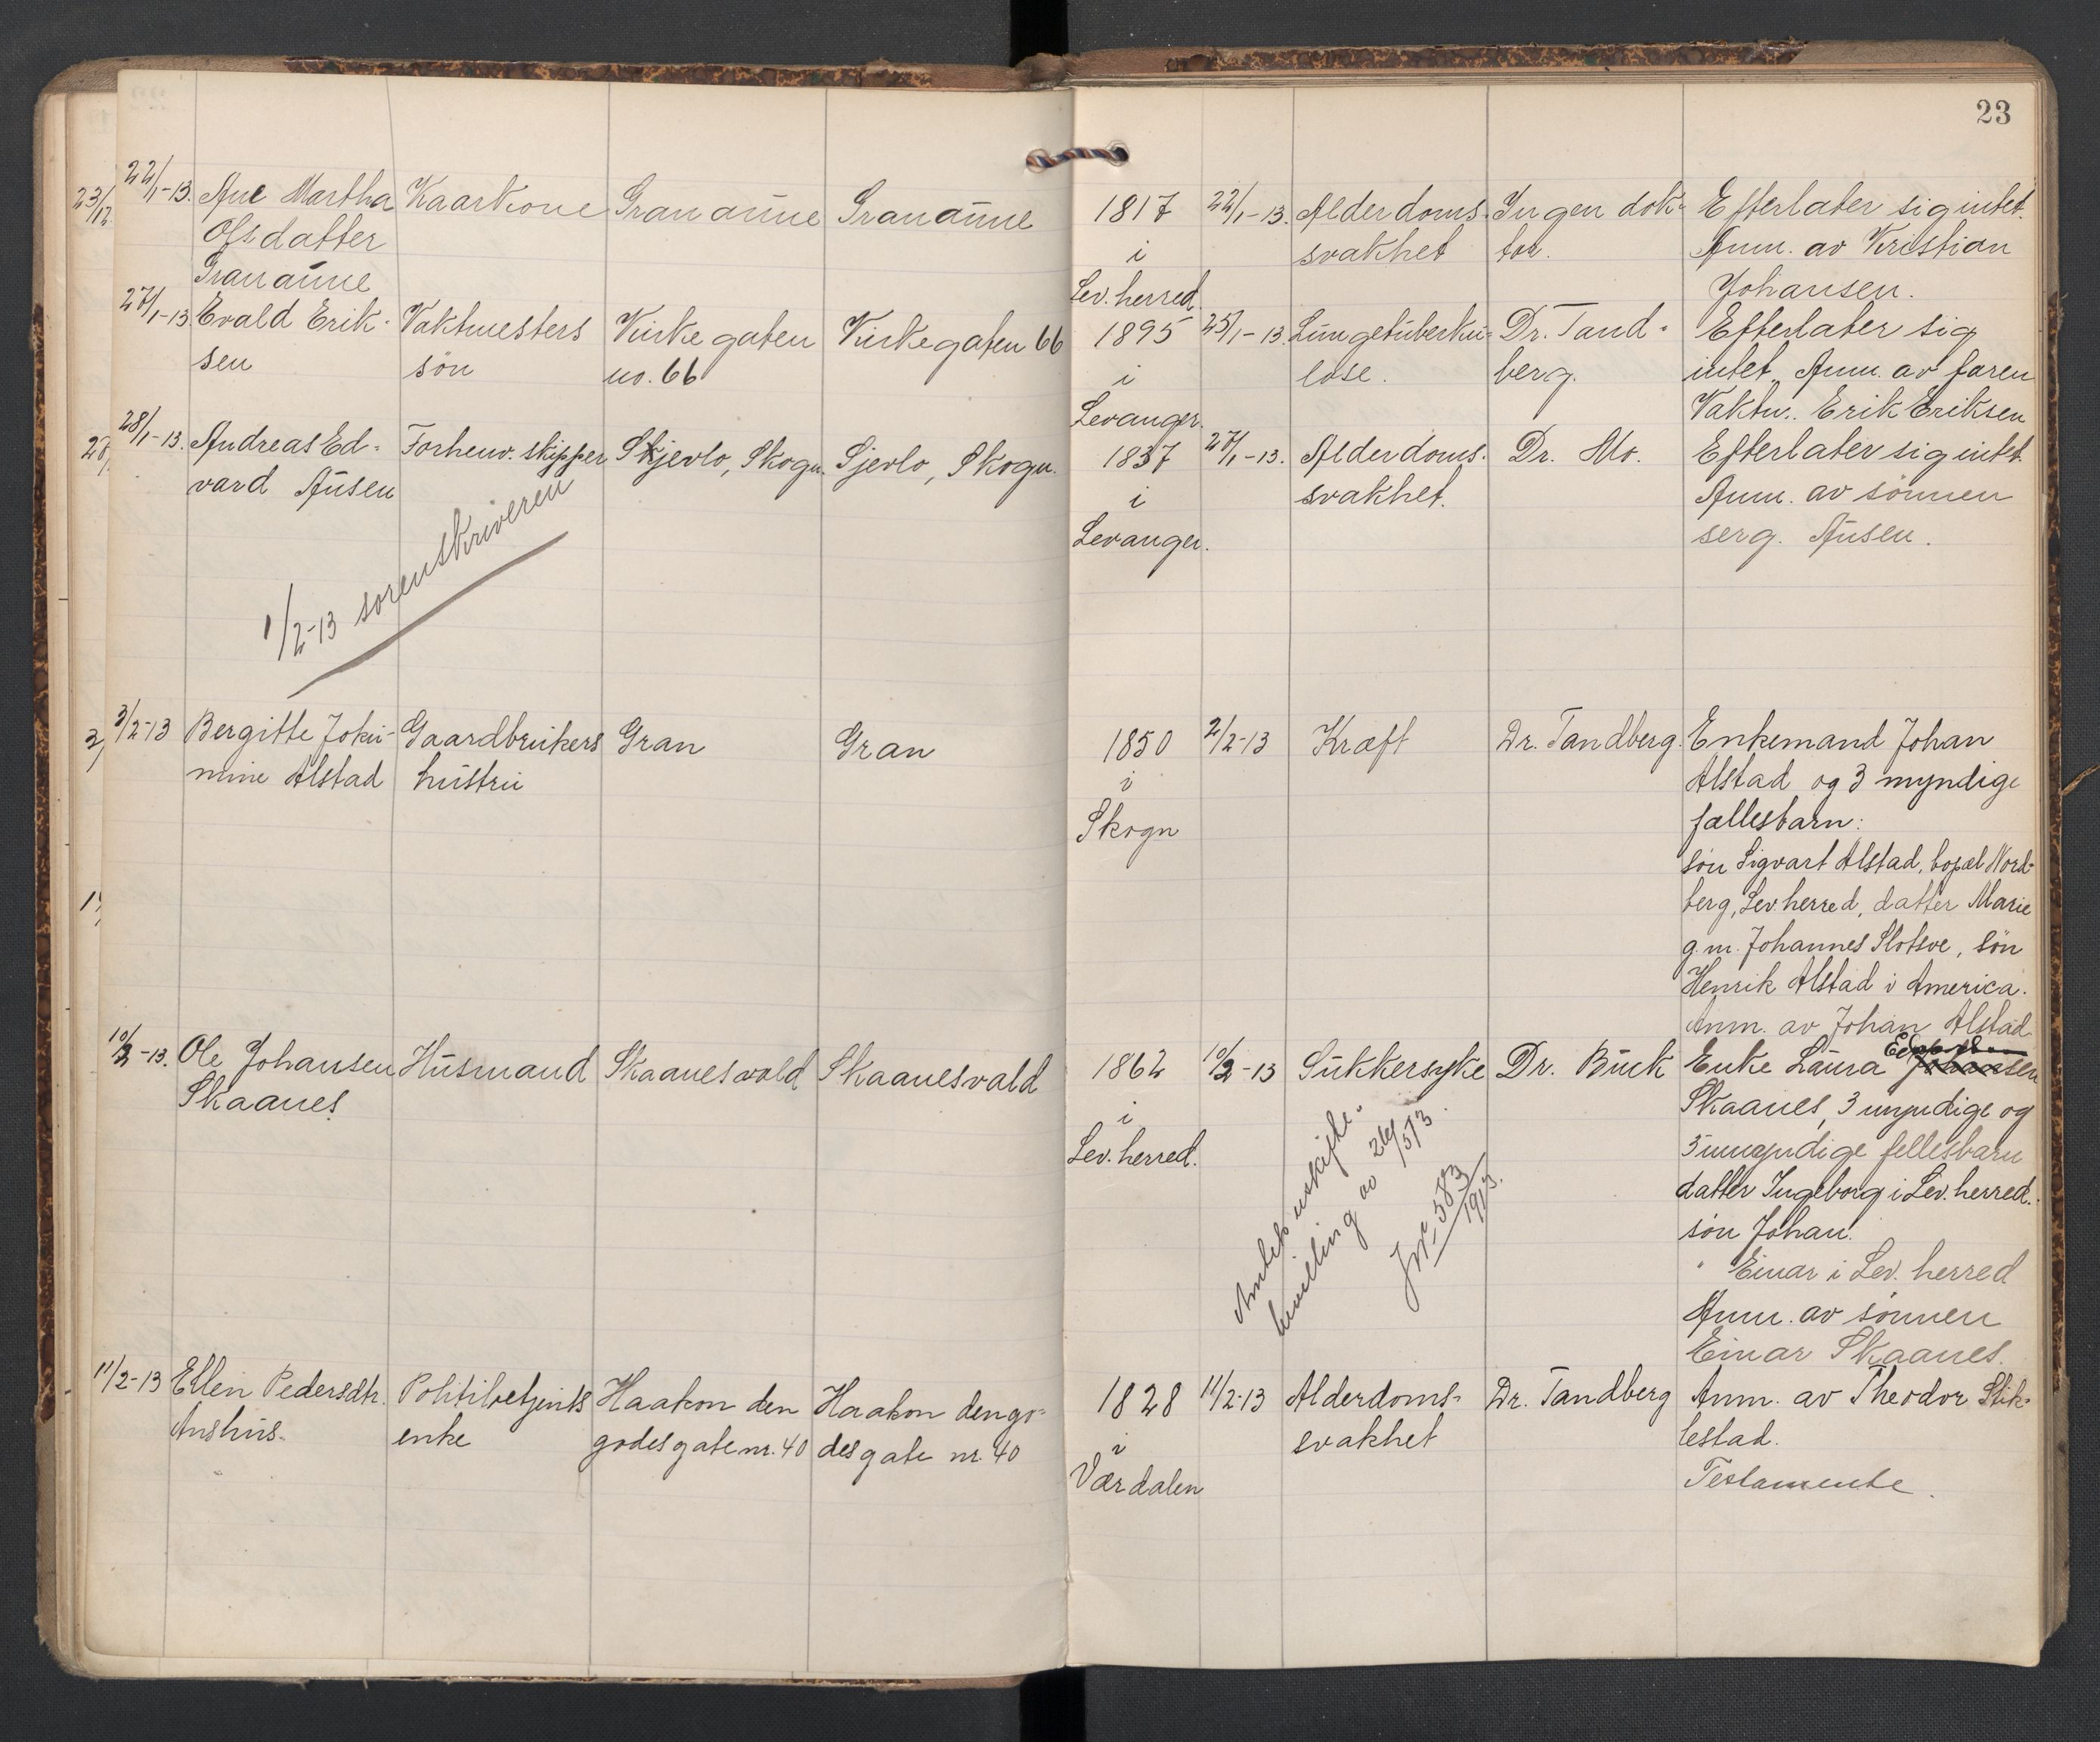 23
22/1-13. Ane Martha Kaarkone Granaune Granaune 1817 22/1-13. Alderdoms- Ingen dok- Efterlater sig intet.
Olsdatter i svakhet tor. Anm. av Kristian
Granaune Lev. herred. Johansen.
27/1-13 Evald Erik- Vaktmesters Kirkegaten Kirkegaten 66 1895 25/1-13. Lungetuberku- Dr. Tand- Efterlater sig
sen søn no. 66 i lose. berg. intet. Anm. av faren
Levanger. Vaktm. Erik Eriksen
28/1-13. Andreas Ed- Forhenv. skipper Skjerlo, Skogn. Sjerlo, Skogn. 1837 27/1-13. Alderdoms- Dr. Mo. Efterlater sig intet.
vard Ausen i svakhet. Anm. av sønnen
Levanger. serg. Ausen.
1/2-13 sorenskriveren
3/2-13 Bergitte Joku- Gaardbrukers Gran Gran 1850 2/2-13 Kræft Dr. Tandberg. Enkemand Johan
mine Alstad hustru i Alstad og 3 myndige
Skogn fællesbarn:
søn Sigvart Alstad, bopæl Nord-
berg, Lev. herred, datter Marie
g. m. Johannes Slotsve, søn
Henrik Alstad i America.
Anm. av Johan Alstad
10/2-13. Ole Johansen Husmand Skaanesvald Skaanesvald 1862 10/2-13 Sukkersyke Dr. Buck Enke Laura Johansen
Skaanes. i Skaanes, 3 myndige og
Lev. herred. 5 umyndige fellesbarn
datter Ingeborg i Lev. herred.
søn Johan.
" Einar i Lev. herred
Anm. av sønnen
Einar Skaanes.
Amtets uskifte-
bevilling av 26/5 13.
Jnr. 583/1913.
11/2-13 Ellen Pedersdtr. Politibetjents Haakon den Haakon den go- 1828 11/2-13 Alderdoms- Dr. Tandberg Anm. av Theodor Stik-
Aushus. enke godes gate nr. 40 des gate nr. 40 i svakhet lestad.
Værdalen Testamente.